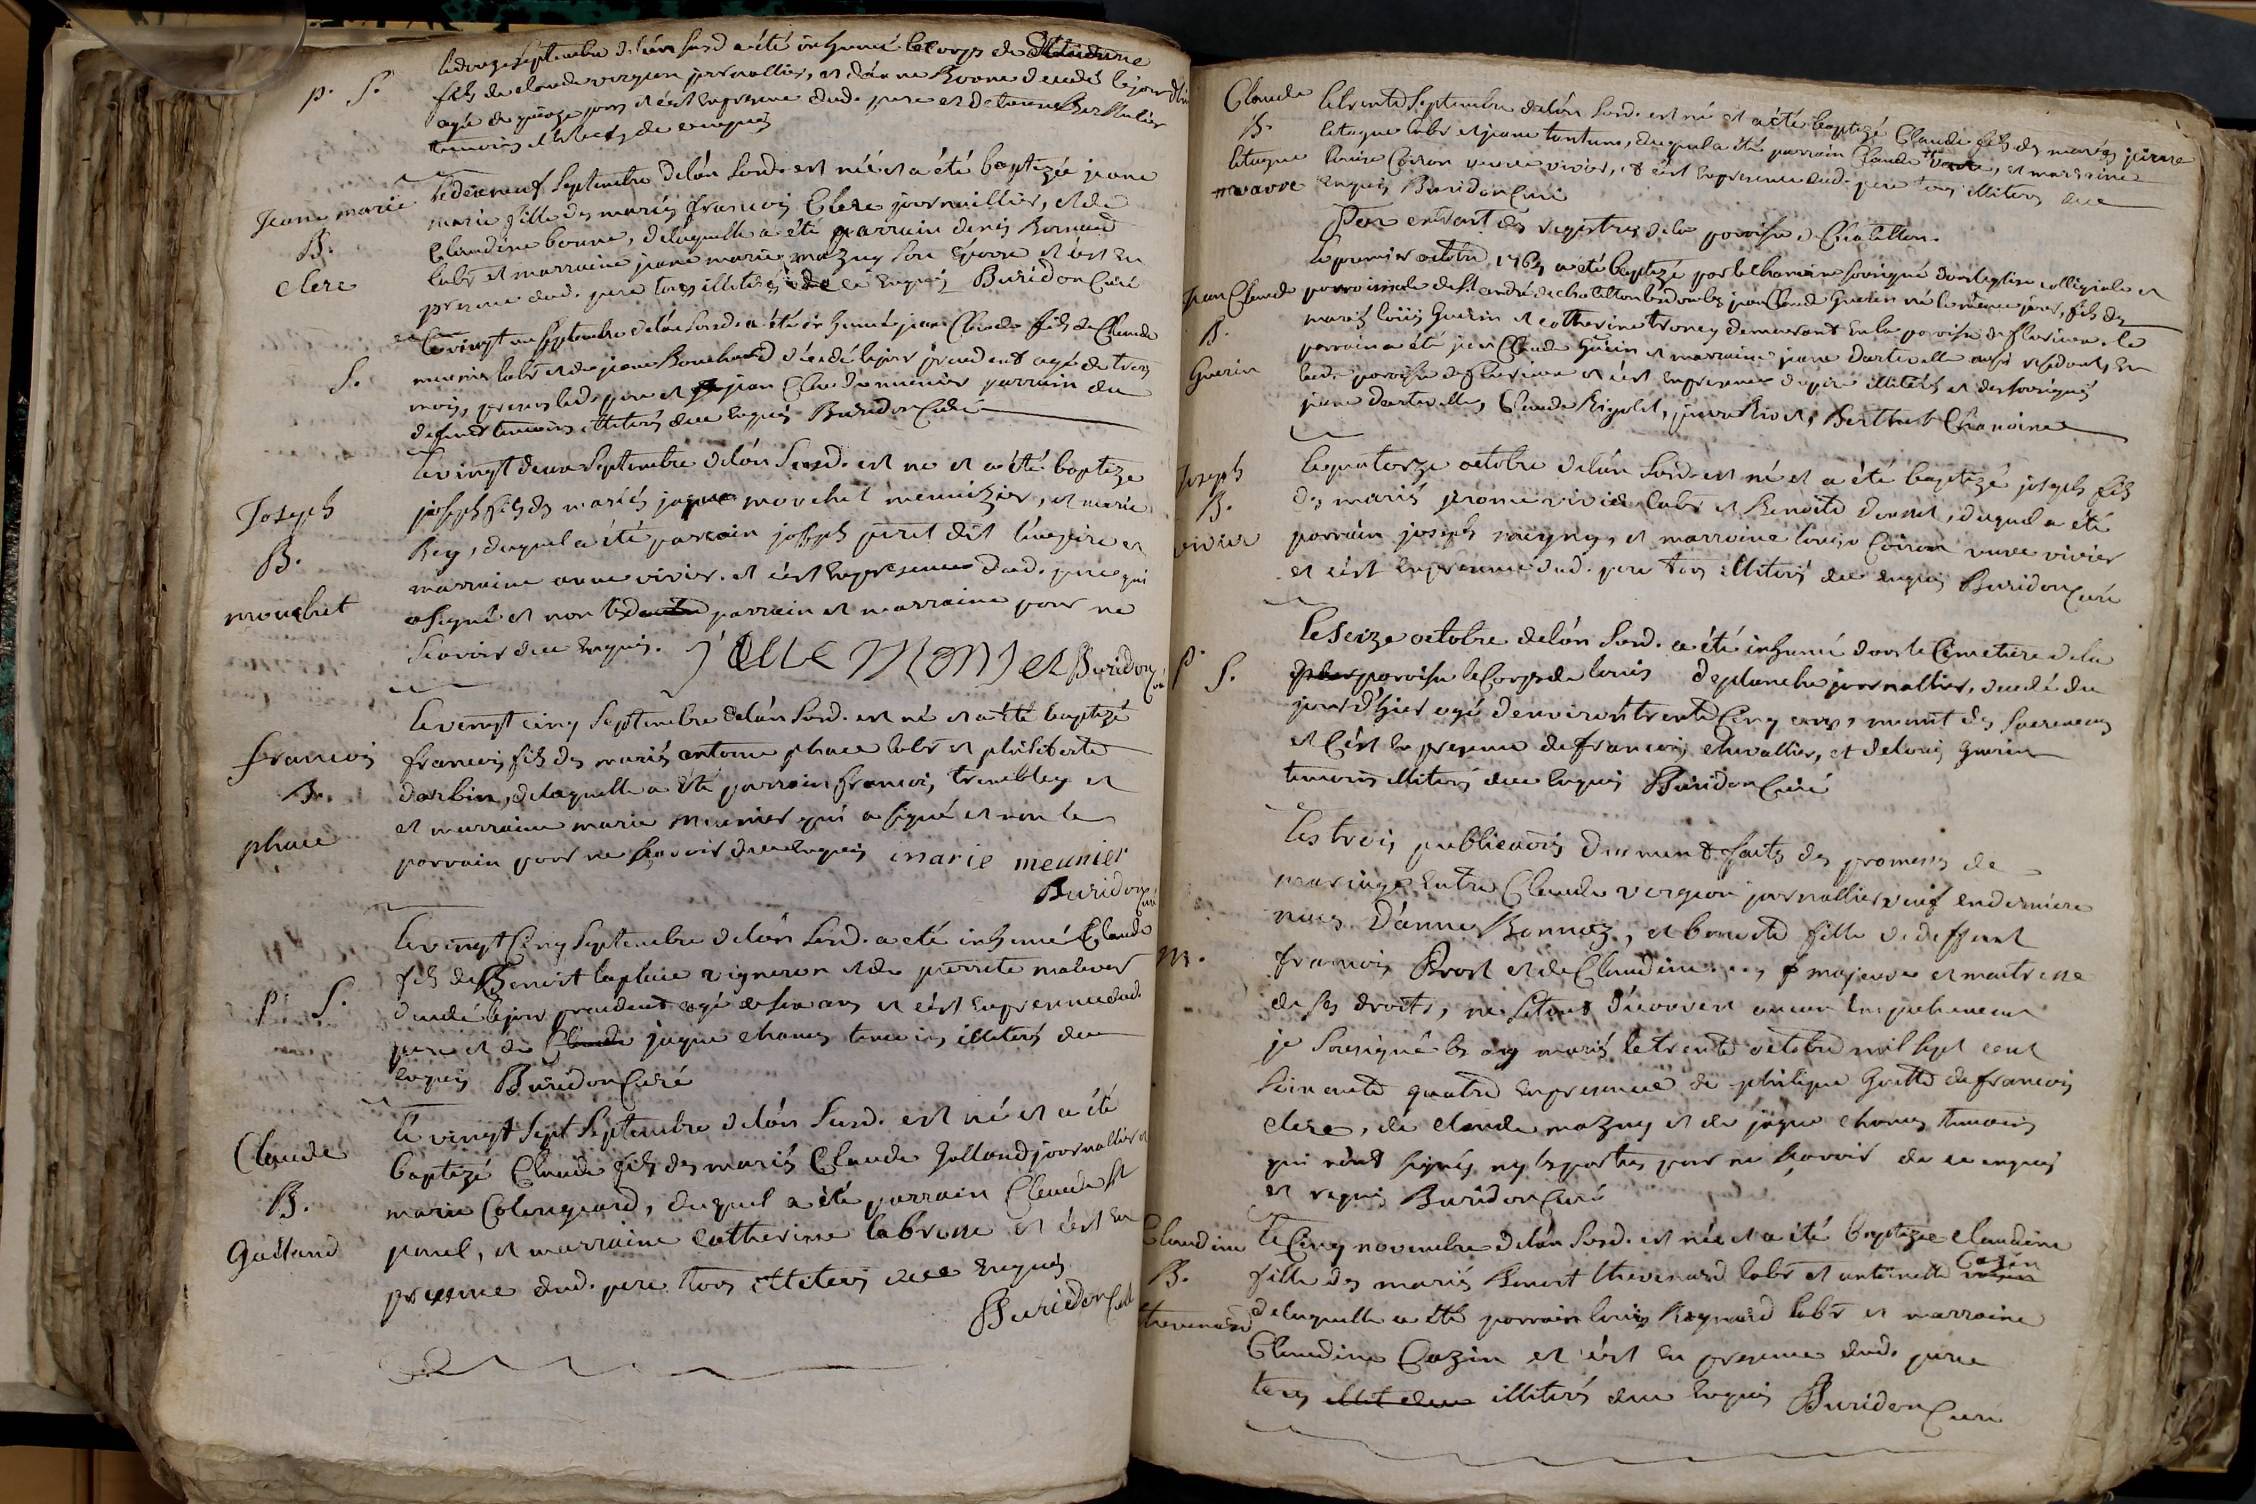 p. S.
le douze septembre de l'án susd. a été inhumé le corps de
fils de claude vergeon journallier, et d'anne Bonne decedé le jour d'hier
agé de quinze jours et c'est en presence dud. pere et de
temoins illiterés de ce enquis
Jeanne marie
B.
Clere
Le dixneuf septembre de l'án susd. est néé et a été baptizée jeane
marie fille des mariés francois Clere journallier, et de
Claudine bonne, de laquelle a été parrain denis Renaud
labr et marraine jeane marie mazuy son epouse et c'est en
presence dud. pere tous illiterés de ce enquis Buridon Curé
S.
Le vingt un septembre de l'án susd. a été inhumé jean Claude fils de Claude
meunier labr et de jeane Bouchard décédé le jour precedent agé de trois
mois, presens led. pere et jean Claude meunier parrain du
defunt temoins illiterés de ce enquis Buridon Curé
Joseph
B.
mouchet
Le vingt deux septembre de l'án susd. est né et a été baptizé
joseph fils des mariés jaque mouchet menuizier, et marie
Rey, duquel a été parrain joseph peret dit l'
marraine anne vivier. et c'est en presence dud. pere qui
a signé et non les parrain et marraine pour ne
scavoir de ce enquis. Buridon Curé
francois
B.
phace
Le vingt cinq septembre de l'án susd. est né et a été baptizé
francois fils des mariés antoine phace labr et philiberte
darbin, de laquelle a été parrain francois trembley et
et marraine marie meunier qui a signé et non le
parrain pour ne scavoir de ce enquis marie meunier
Buridon Curé
p. S.
Le vingt Cinq septembre de l'án susd. a été inhumé Claude
fils de Benoit laplace vigneron et de pierrete
decedé le jour precedent agé de six ans et c'est en presence dud.
pere et de jaque chanes temoins illiterés de ce
enquis Buridon Curé
Claude
B.
Galland
Le vingt sept septembre de l'án susd. est né et a été
baptizé Claude fils des mariés Claude Galland journallier et
marie Colonguard, duquel a été parrain Claude St
paul, et marraine Catherine labrosse et c'est en
presence dud. pere tous illiterés de ce enquis
Buridon Curé
Claude
B.
letang
Le trente septembre de l'án susd. est né et a été baptizé Claude fils des mariés pierre
labr et jeane tontuns, duquel a été parrain Claude, et marraine
louise Coiron veuve vivier, et c'est en presence dud. pere tous illiterés de ce
enquis Buridon Curé
Par extrait des registres de la paroisse de Chatillon.
Jean Claude
B.
Guerin
Le premier octobre 1764 a été baptizé par le chanoine soussigné dans l'eglise collegiale et
paroissiale de St. andré de chatillon les dombes jean Claude Guerin né le même jour, fils des
mariés loüis Guerin et catherine troncy demeurant en la paroisse de fleurieux. le
parrain a été jean Claude Guerin et marraine jeane dartevelle aussi residents en
lade. paroisse de fleurieux et c'est en presence du pere illiterés et des soussignés
jeane dartevelle, Claude Rigolet, pierre Rivet, Berthet Chanoine
Joseph
B.
vivier
Le quatorze octobre de l'án susd. est né et a été baptizé joseph fils
des mariés jerome vivier labr et Benoite donnet, duquel a été
parrain joseph et marraine louise Coiron veuve vivier
et c'est en presence dud. pere tous illiterés de ce enquis Buridon Curé
P. S.
Le seize octobre de l'án susd. a été inhumé dans le Cimetiere de la
paroisse le Corps de louis deplanche journallier, decedé du
jour d'hier agé d'environ trente Cinq ans, muni des sacremens
et c'est en presence de francois chevallier, et de louis guerin
temoins illiterés de ce enquis Buridon Curé
M.
Les trois publications duement faites des promesses de
mariage entre Claude vergeon journallier veuf en dernieres
nôces d'anne Bonnez, et benoite fille de deffunt
francois Prost et de Claudine ... majeure et maitresse
de ses droits, ne s'etant découvert aucun empechement
je soussigné les ay mariés le trente octobre mil sept cent
soixante quatre en presence de philipe Goutte de francois
Clere, de claude mazuy et de jaque chanes temoins
qui n'ont signés ny les parties pour ne scavoir de ce enquis
et requis Buridon Curé
Claudine
B.
thevenard
Le Cinq novembre de l'án susd. est néé et a été baptizée claudine
fille des mariés Benoit thevenard labr et antoinette Cazin
de laquelle a été parrain louis Reynard labr et marraine
Claudine Cazin et c'est en presence dud. pere
tous illiterés de ce enquis Buridon Curé